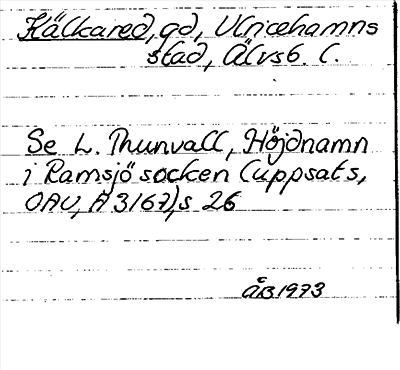 Kälkared, gd, Ulricehamns
stad, Älvsb. l.
Se L. Thunvall, Höjdnamn
i Ramsjö socken (uppsats,
OAU, A 3167), s 26
ÅB 1973